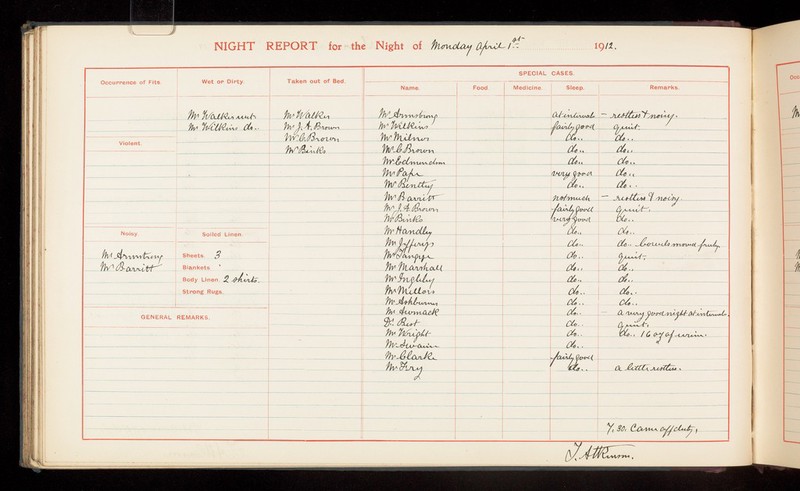 NIGHT REPORT for the Night of Monday April 1st 1912.
Occurrence of Fits.
Wet or Dirty.
Taken out of Bed.
SPECIAL CASES.
Name.
Food
Medicine
Sleep.
Remarks.
Mr Walker wet
Mr Wilkins do..
Mr Walker
Mr J. A. Brown
Mr C. Brown
Mr Binks
Violent.
Noisy.
Mr Armstrong
Mr Barritt
Soiled Linen.
Sheets 3
Blankets
Body Linen 2 shirts.
Strong Rugs.
GENERAL REMARKS.
Mr Armstrong at intervals - restless & noisy.
Mr Wilkins fairly good quiet.
Mr Milnes do.. do..
Mr C. Brown do.. do..
Mr Edmondson do.. do..
Mr Pape very good do..
Mr Bentley do.. do..
Mr Barritt not much - restless & noisy
Mr J. A. Brown fairly good quiet.
Mr Binks very good do..
Mr Handley do.. do..
Mr Jefferys do.. do.. bowels moved freely.
Mr do.. quiet.
Mr Marshall do.. do..
Mr Ingleby do.. do..
Mr Mellors do.. do..
Mr Ashburner do.. do..
Mr do.. a very good night at intervals.
Dr. Best do.. quiet.
Mr Wright do.. do.. 16 oz of urine.
Mr Swain do..
Mr Clarke fairly good
Mr Fry do.. a little restless.
7.30. Came off duty,
J. Atkinson.